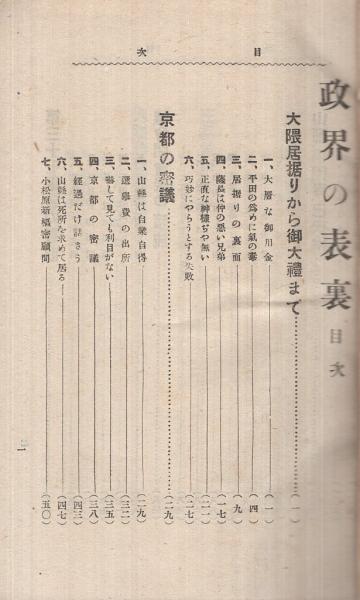 目次
政界の表裏 目次
大隈居据りから御大禮まで…………(一)
一、大層な御用金――(一)
二、平田の爲めに氣の毒――(四)
三、居据りの裏面――(九)
四、薩長は仲の悪い兄弟――(一七)
五、正直な神様ぢや無い――(二一)
六、巧妙にやらうとする失敗――(二七)
京都の密議…………(二九)
一、山縣は自業自得――(二九)
二、選擧費の出所――(三二)
三、脅して見ても利目がない――(三五)
四、京都の密議――(三八)
五、經過だけ話さう――(四三)
六、山縣は死所を求めて居る――(四七)
七、小松原新樞密顧問――(五〇)
一